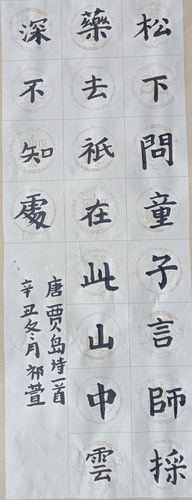 松下問童子言師採
藥去祇在此山中雲
深不知處
唐贾岛诗一首
辛丑冬月祁萱